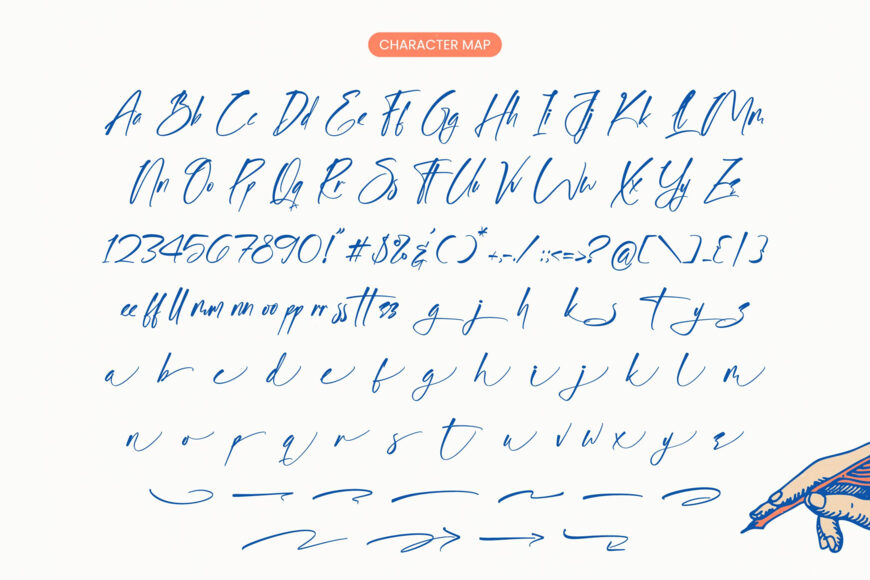 CHARACTER MAP
Aa Bb Cc Dd Ee Ff Gg Hh Ii Jj Kk Ll Mm
Nn Oo Pp Qq Rr Ss Tt Uu Vv Ww Xx Yy Zz
1234567890!"#$%&'()*+,-./:;<=>?@[\]_{|}
ee ff ll mm nn oo pp rr ss tt zz g j h k s t y z
a b c d e f g h i j k l m
n o p q r s t u v w x y z